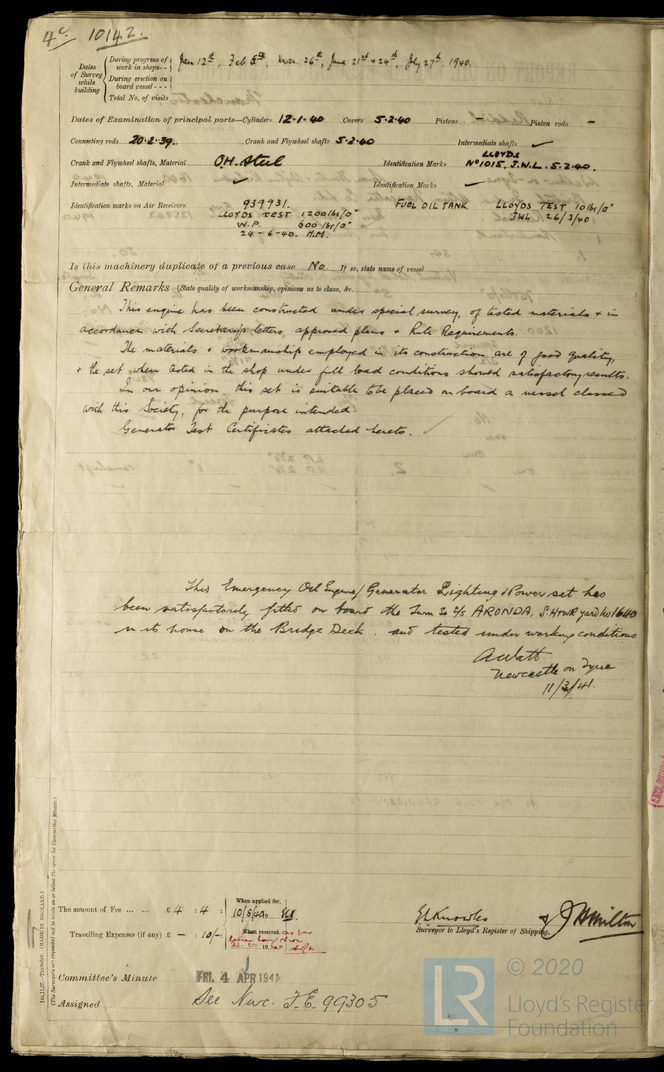 4c. 10142.
Dates of Survey while building
During progress of work in shops - -
Jan 12th, Feb 5th, Mar. 26th, June 21st & 24th, July 27th 1940.
During erection on board vessel - - -
Total No. of visits
Dates of Examination of principal parts—Cylinders 12-1-40 Covers 5-2-40 Pistons - Piston rods -
Connecting rods 20-2-39. Crank and Flywheel shafts 5-2-40 Intermediate shafts ✓
Crank and Flywheel shafts, Material O.H. Steel Identification Marks LLOYDS No 1015. J.W.L. 5.2.40.
Intermediate shafts, Material ✓ Identification Marks ✓
Identification marks on Air Receivers 939731. FUEL OIL TANK LLOYDS TEST 10 lbs/□"
LLOYDS TEST 1200 lbs/□" JWL 26/3/40
W.P. 600 lbs/□"
24-6-40. H.M.
Is this machinery duplicate of a previous case No. If so, state name of vessel
General Remarks (State quality of workmanship, opinions as to class, &c.
This engine has been constructed under special survey, of tested materials & in
accordance with Secretary's letters, approved plans & Rule Requirements.
The materials & workmanship employed in its construction are of good quality,
& the set when tested in the shop under full load conditions showed satisfactory results.
In our opinion this set is suitable to be placed on board a vessel classed
with this Society, for the purpose intended.
Generator Test Certificates attached hereto.
This Emergency Oil Engine/Generator Lighting & Power set has
been satisfactorily fitted on board the Twin Sc S/S ARONDA, S. H & WR yard No 1640
in its house on the Bridge Deck. and tested under working conditions
A Watt
Newcastle on Tyne
11/3/41.
The amount of Fee ... ... £ 4 : 4 : When applied for, 10/8/1940
Travelling Expenses (if any) £ - : 10/- : When received,
E L Knowles & J H Milton
Surveyor to Lloyd's Register of Shipping.
Committee's Minute FRI. 4 APR 1941
Assigned See Nwc. F.E. 99305
(MADE IN ENGLAND.)
(The Surveyors are requested not to write on or below the space for Committee Minute.)
© 2020
LR
Lloyd's Register
Foundation